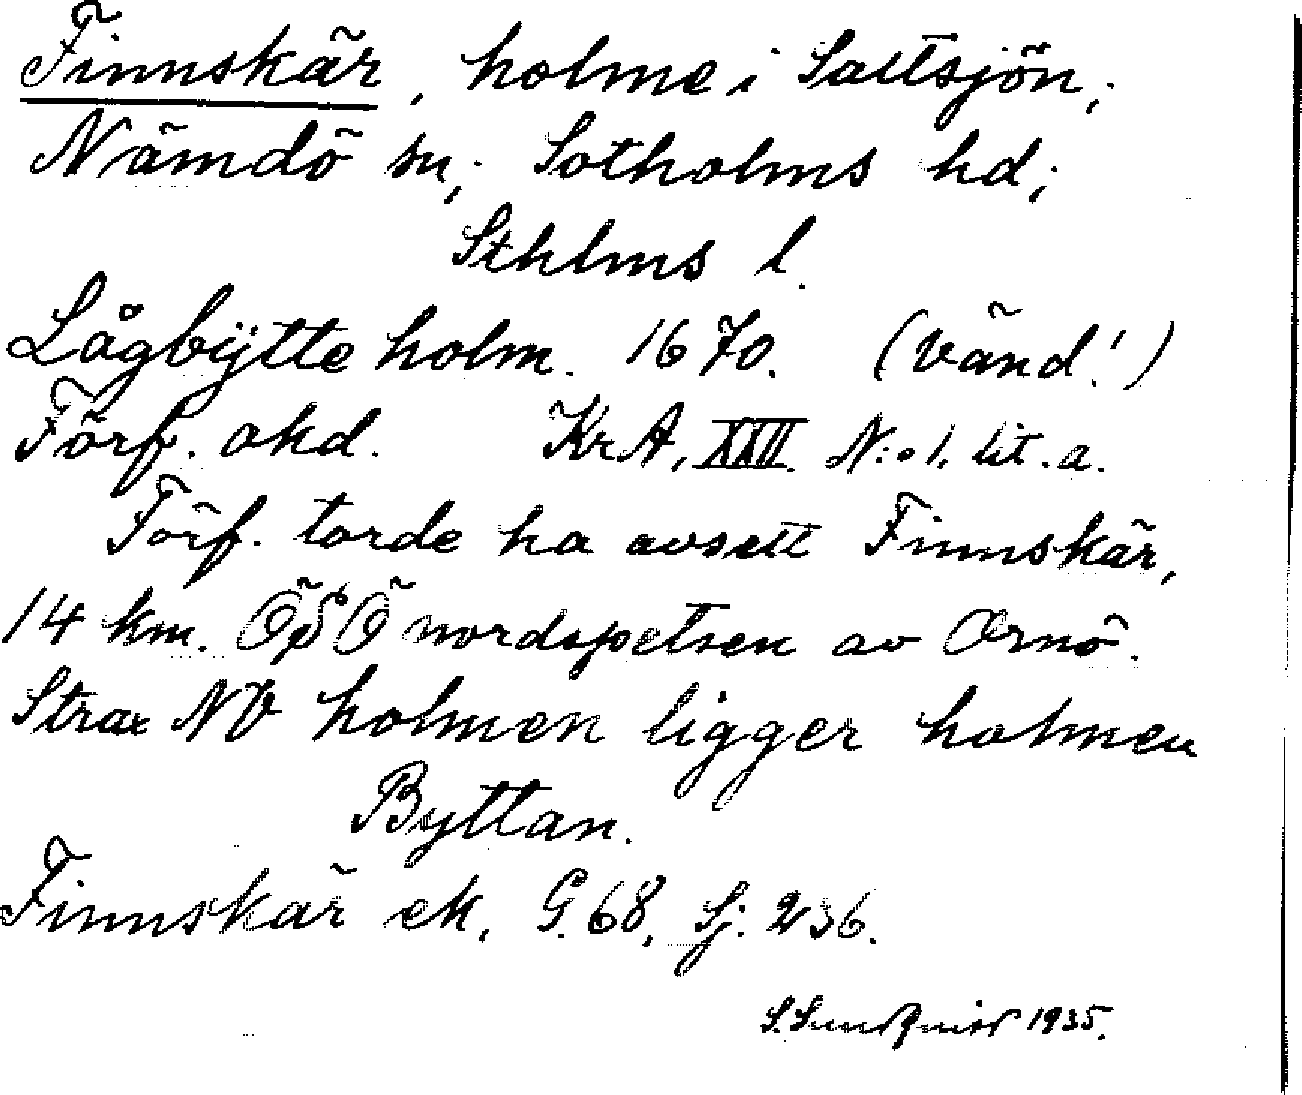 Finnskär, holme i Saltsjön;
Nämdö sn; Sotholms hd;
Sthlms l.
Lågbÿtte holm. 1670. (vänd!)
Förf. okd. KrA, XXII. N:o 1. lit. a.
Förf. torde ha avsett Finnskär,
14 km. ÖSÖ nordspetsen av Ornö.
Strax NV holmen ligger holmen
Byttan.
Finnskär ek. G. 68, Sj: 236.
S. Sundquist 1935.